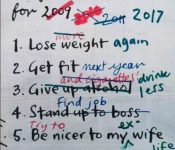 for 2009 2011 2017
more
1. Lose weight again
2. Get fit next year
and cigarettes'
3. Give up alcohol drink less
find job
4. Stand up to boss
Try to ex
5. Be nicer to my wife
life